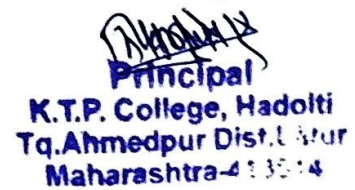 Principal
K.T.P. College, Hadolti
Tq.Ahmedpur Dist.
Maharashtra